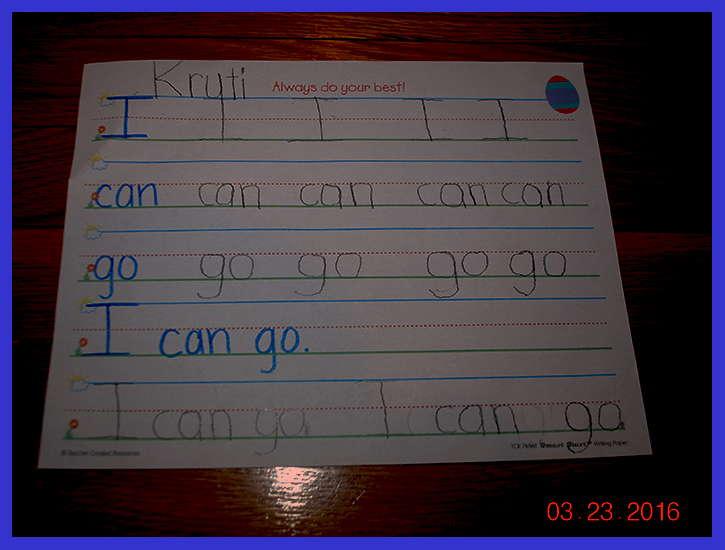 Kryti Always do your best!
I I I I I
can can can can can
go go go go go
I can go.
I can go. I can go
© Teacher Created Resources TCR 76501 Smart Start™ Writing Paper
03.23.2016